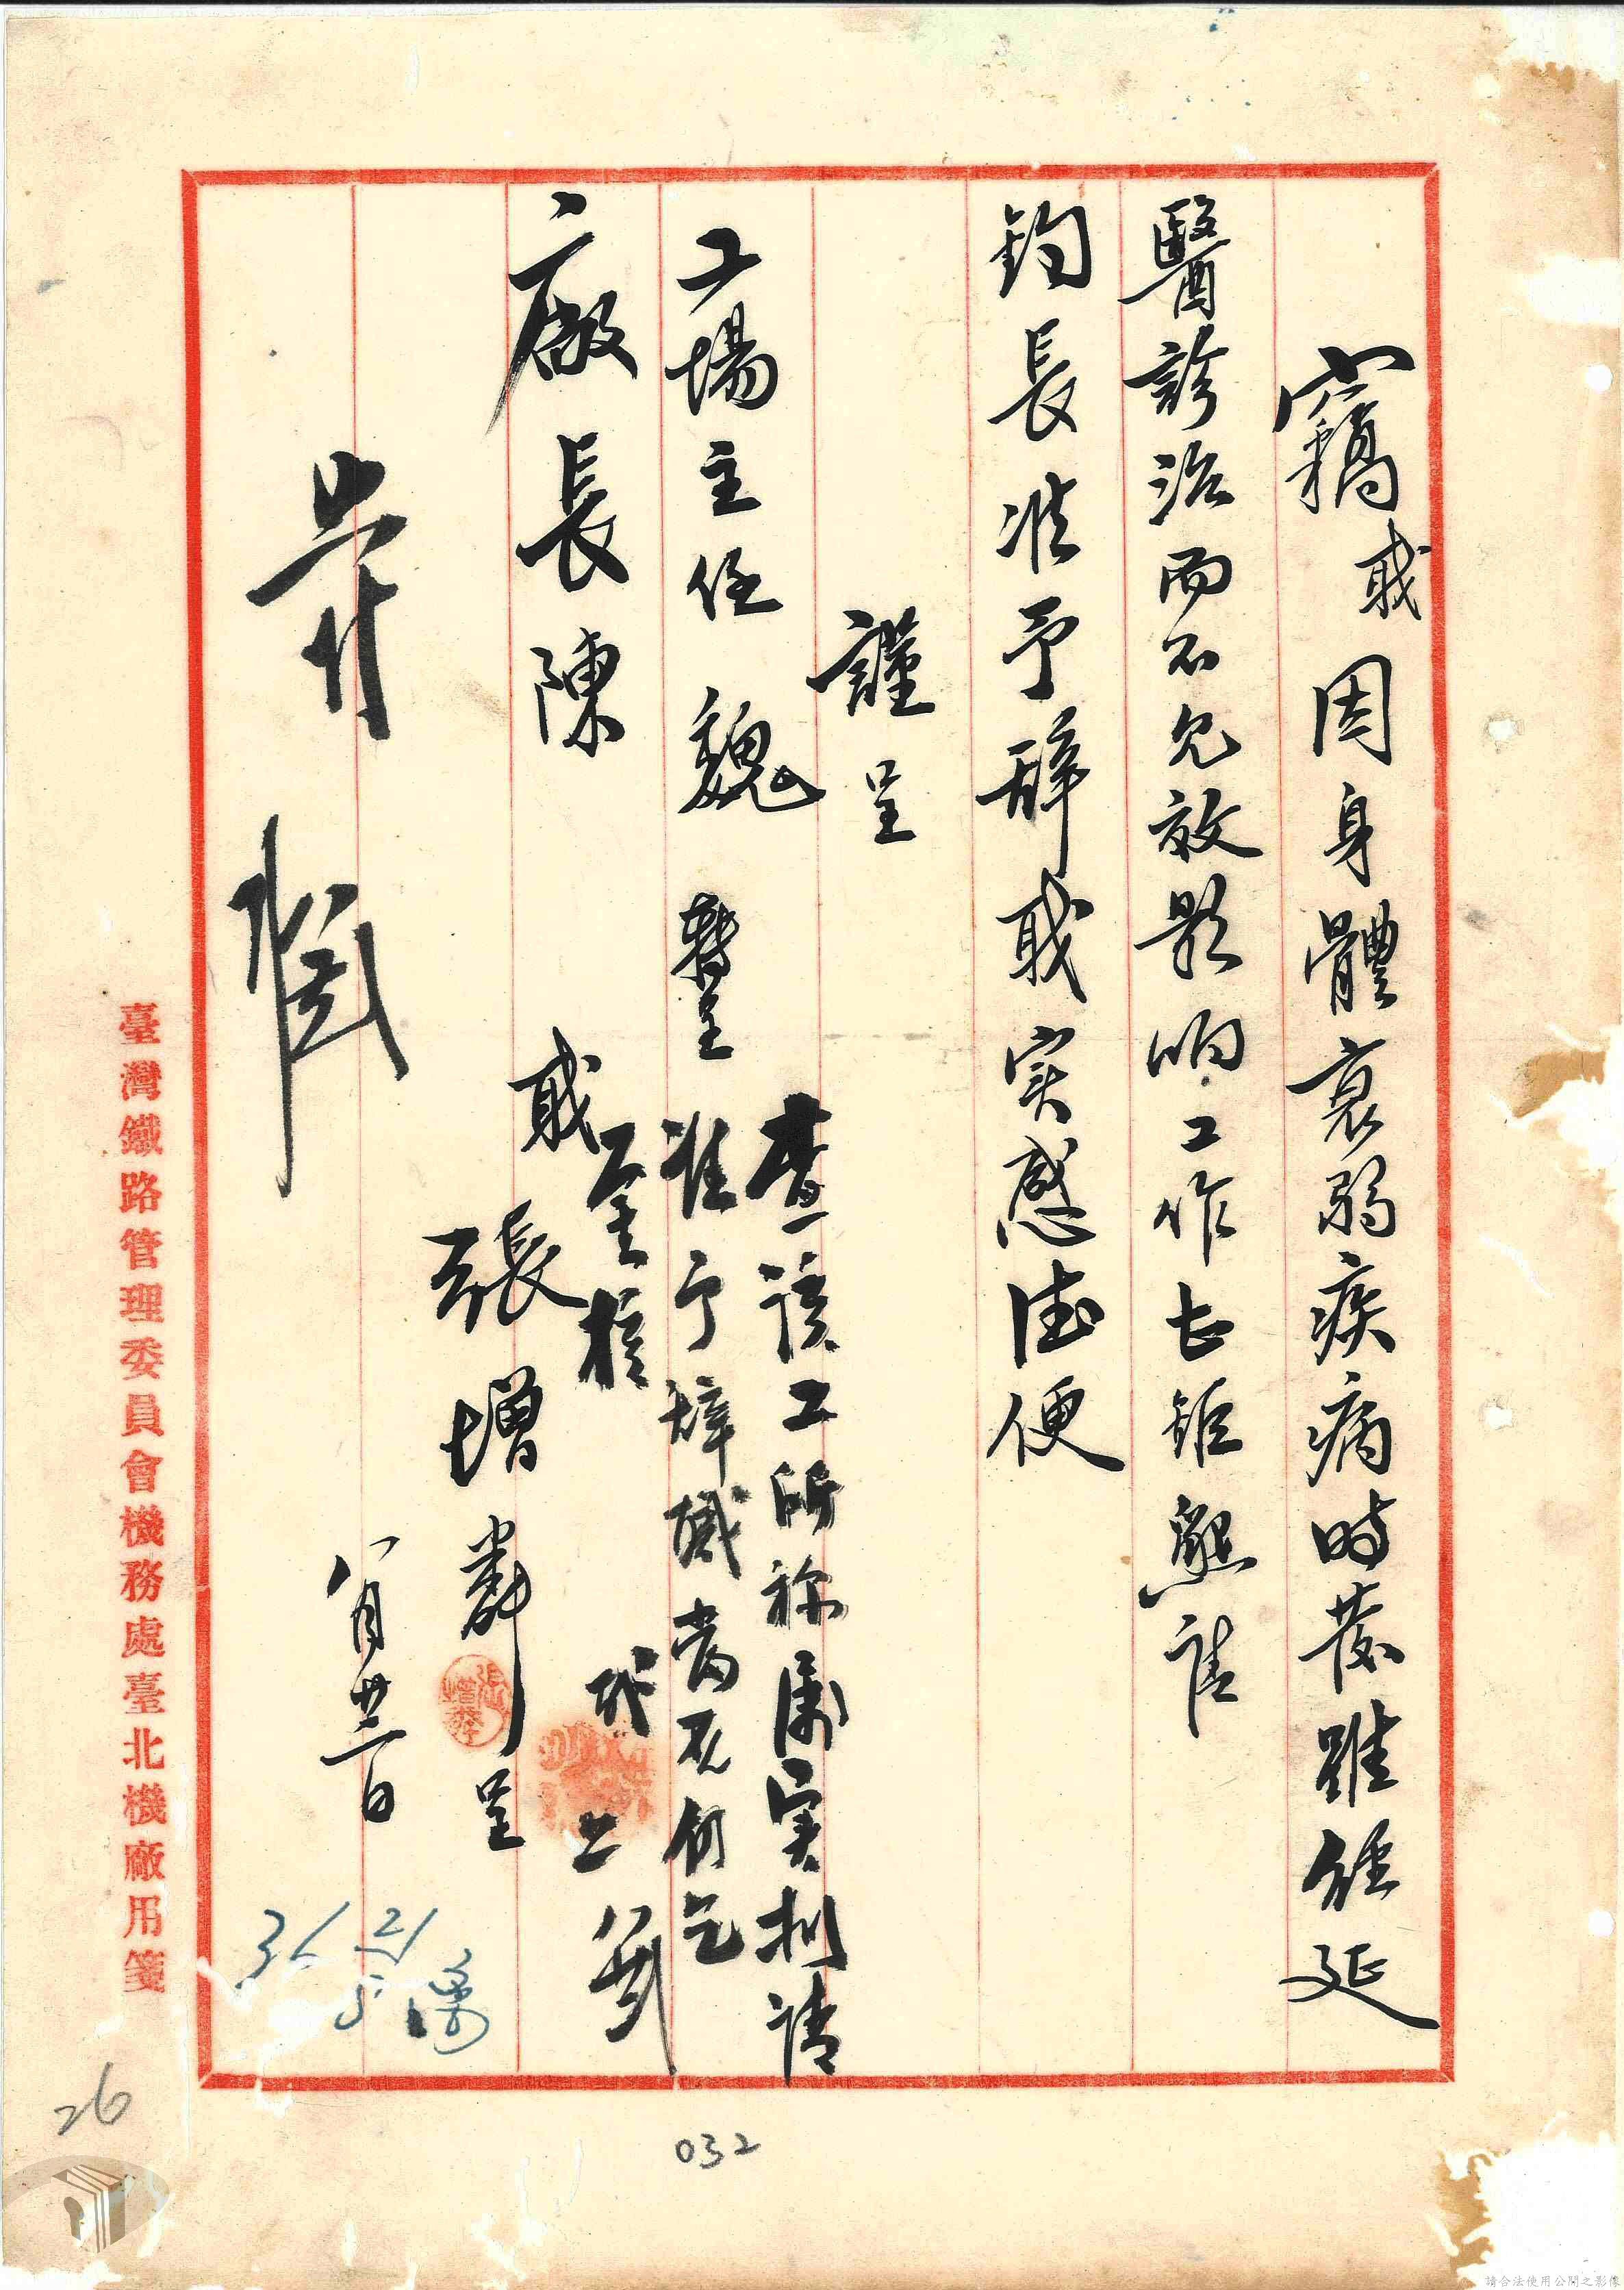 竊職因身體衰弱疾病時發雖經延
醫診治而不見效影响工作至鉅懇請
鈞長准予辞职实感德便
謹呈
工場主任魏 轉呈
廠長陳
職張增 呈
八月廿三日
查該工所称属实拟請
准予辞職當否仍乞
鑒核
張增
臺灣鐵路管理委員會機務處臺北機廠用箋
26
032
請合法使用公開之影像